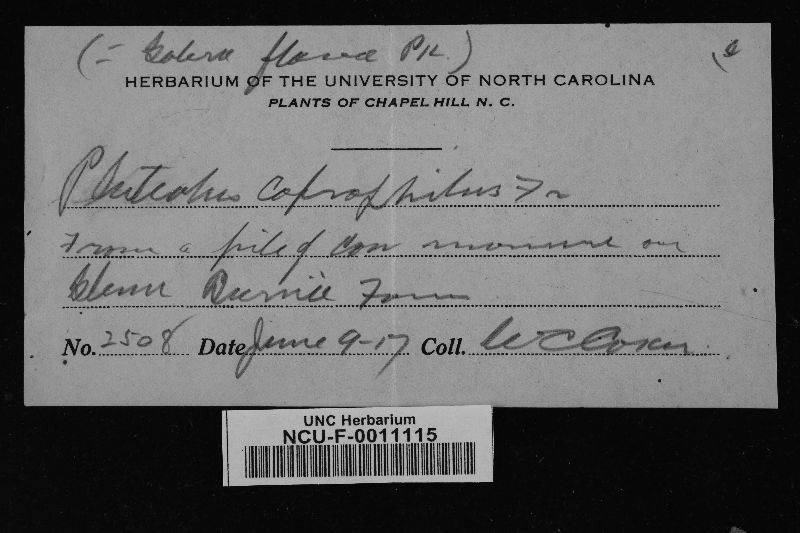 (= Galera flava Pk.)
HERBARIUM OF THE UNIVERSITY OF NORTH CAROLINA
PLANTS OF CHAPEL HILL N. C.
Pluteolus coprophilus Fr
From a pile of cow manure on
Glenn Burnie Farm
No. 2508 Date June 9-17 Coll. W C Coker
UNC Herbarium
NCU-F-0011115